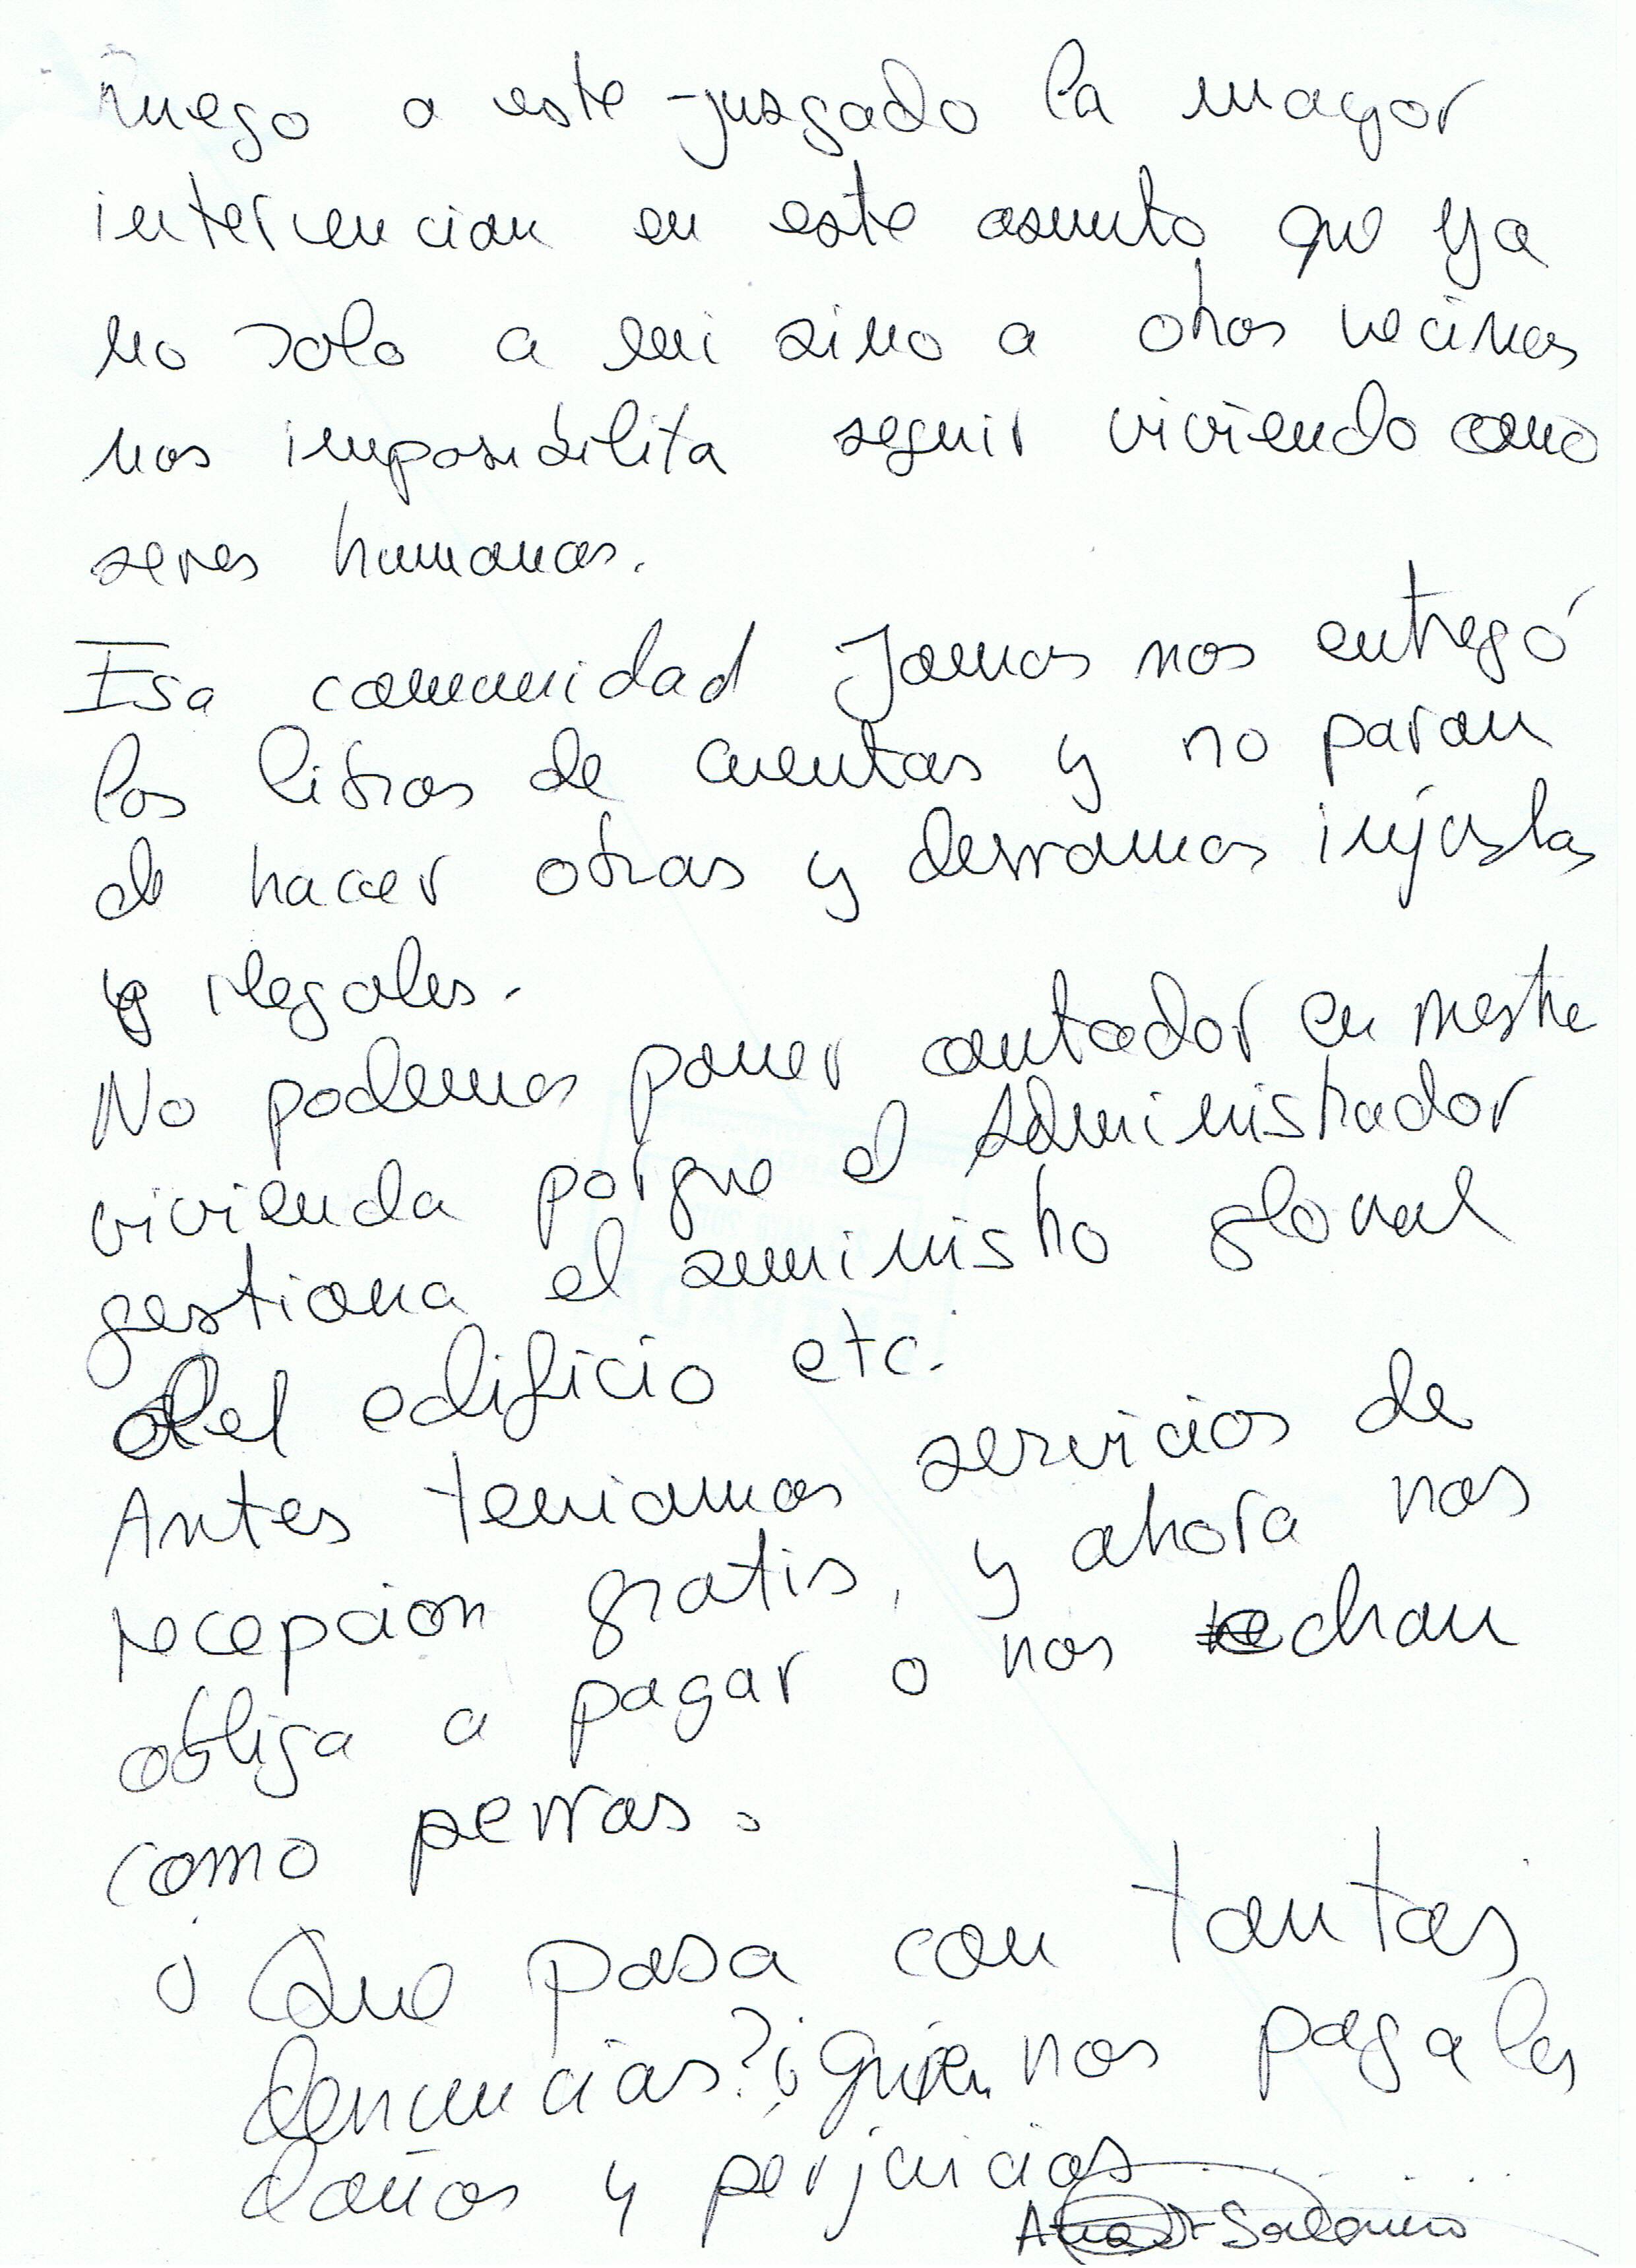 Ruego a este juzgado la mayor
intervencion en este asunto que ya
no solo a mi sino a otros vecinos
nos imposibilita seguir viviendo como
seres humanos.
Esa comunidad Jamas nos entregó
los libros de cuentas y no paran
de hacer otras y derramas injustas
y ilegales.
No podemos poner contador en nestra
vivienda porque el Administrador
gestiona el suministro gloval
del edificio etc.
Antes teniamos servicios de
recepcion gratis, y ahora nos
obliga a pagar o nos echan
como perros.
¿Que pasa con tantas
denuncias? ¿Quien nos paga los
daños y perjuicios
ENTRADA